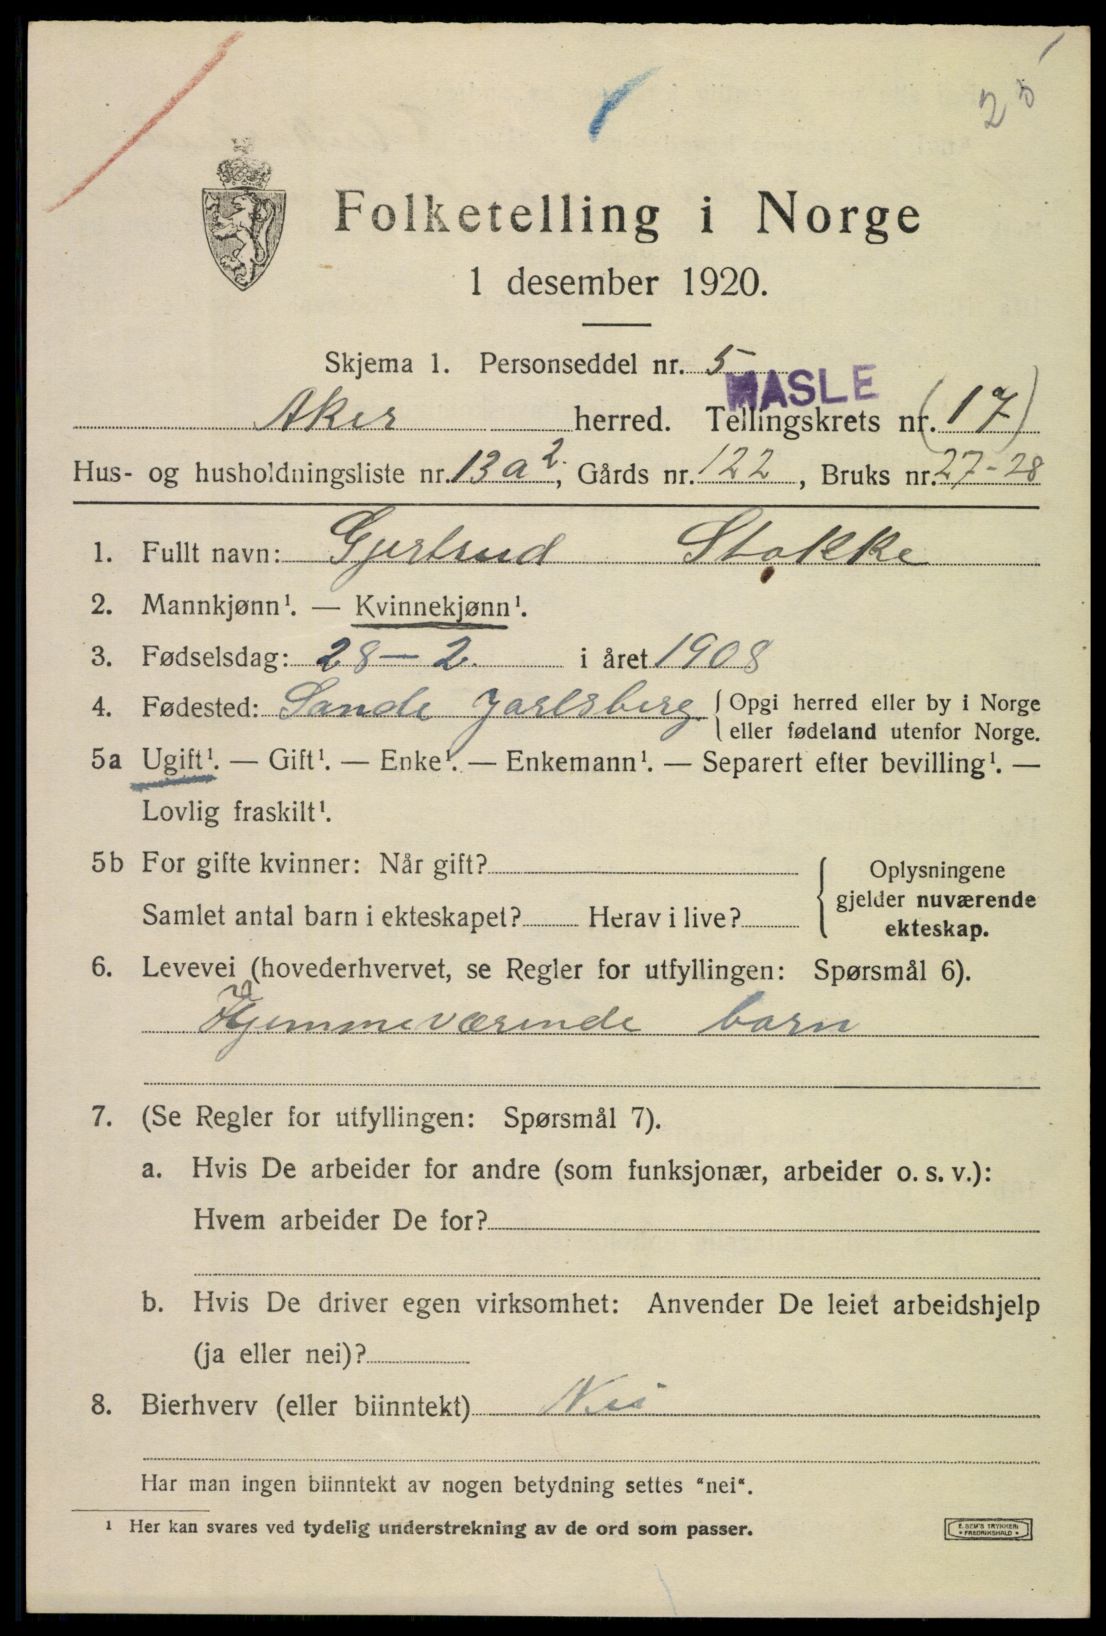 25
Folketelling i Norge
1 desember 1920.
Skjema 1. Personseddel nr. 5
HASLE
Aker herred. Tellingskrets nr. (17)
Hus- og husholdningsliste nr. 13a2; Gårds nr. 122, Bruks nr. 27-28
1. Fullt navn: Gjertrud Stokke
2. Mannkjønn¹. — Kvinnekjønn¹.
3. Fødselsdag: 28-2. i året 1908
4. Fødested: Sande Jarlsberg { Opgi herred eller by i Norge
eller fødeland utenfor Norge.
5a Ugift¹. — Gift¹. — Enke¹. — Enkemann¹. — Separert efter bevilling¹. —
Lovlig fraskilt¹.
5b For gifte kvinner: Når gift?
Samlet antal barn i ekteskapet? Herav i live?
{ Oplysningene
gjelder nuværende
ekteskap.
6. Levevei (hovederhvervet, se Regler for utfyllingen: Spørsmål 6).
Hjemmeværende barn
7. (Se Regler for utfyllingen: Spørsmål 7).
a. Hvis De arbeider for andre (som funksjonær, arbeider o. s. v.):
Hvem arbeider De for?
b. Hvis De driver egen virksomhet: Anvender De leiet arbeidshjelp
(ja eller nei)?
8. Bierhverv (eller biinntekt) Nei
Har man ingen biinntekt av nogen betydning settes “nei“.
¹ Her kan svares ved tydelig understrekning av de ord som passer.
E. SEM'S TRYKKERI
• FREDRIKSHALD •